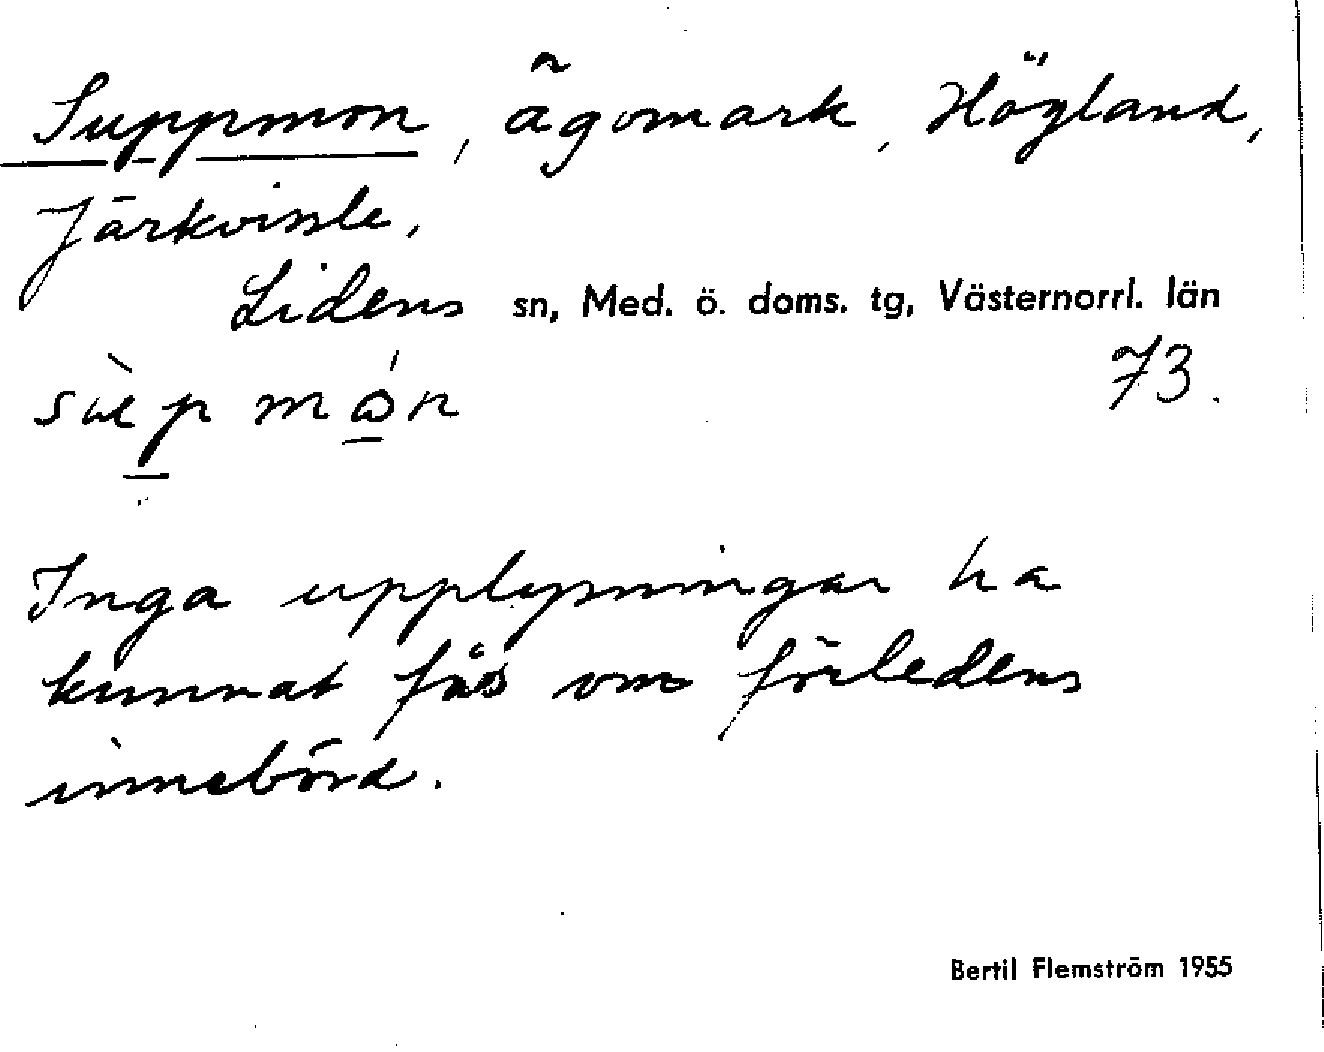 Suppmon, ägomark, Högland,
Järkvissle,
Lidens sn, Med. ö. doms. tg, Västernorrl. län
73.
Inga upplysningar ha
kunnat fås om förledens
innebörd.
Bertil Flemström 1955